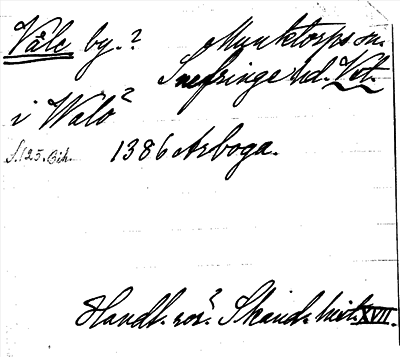 Våle by.? Munktorps sn.
Snefringe hd. Vstl.
i Walö?
S. 125. Bih. 1386 Arboga.
Handl. rör? Skand. hist. XVII.